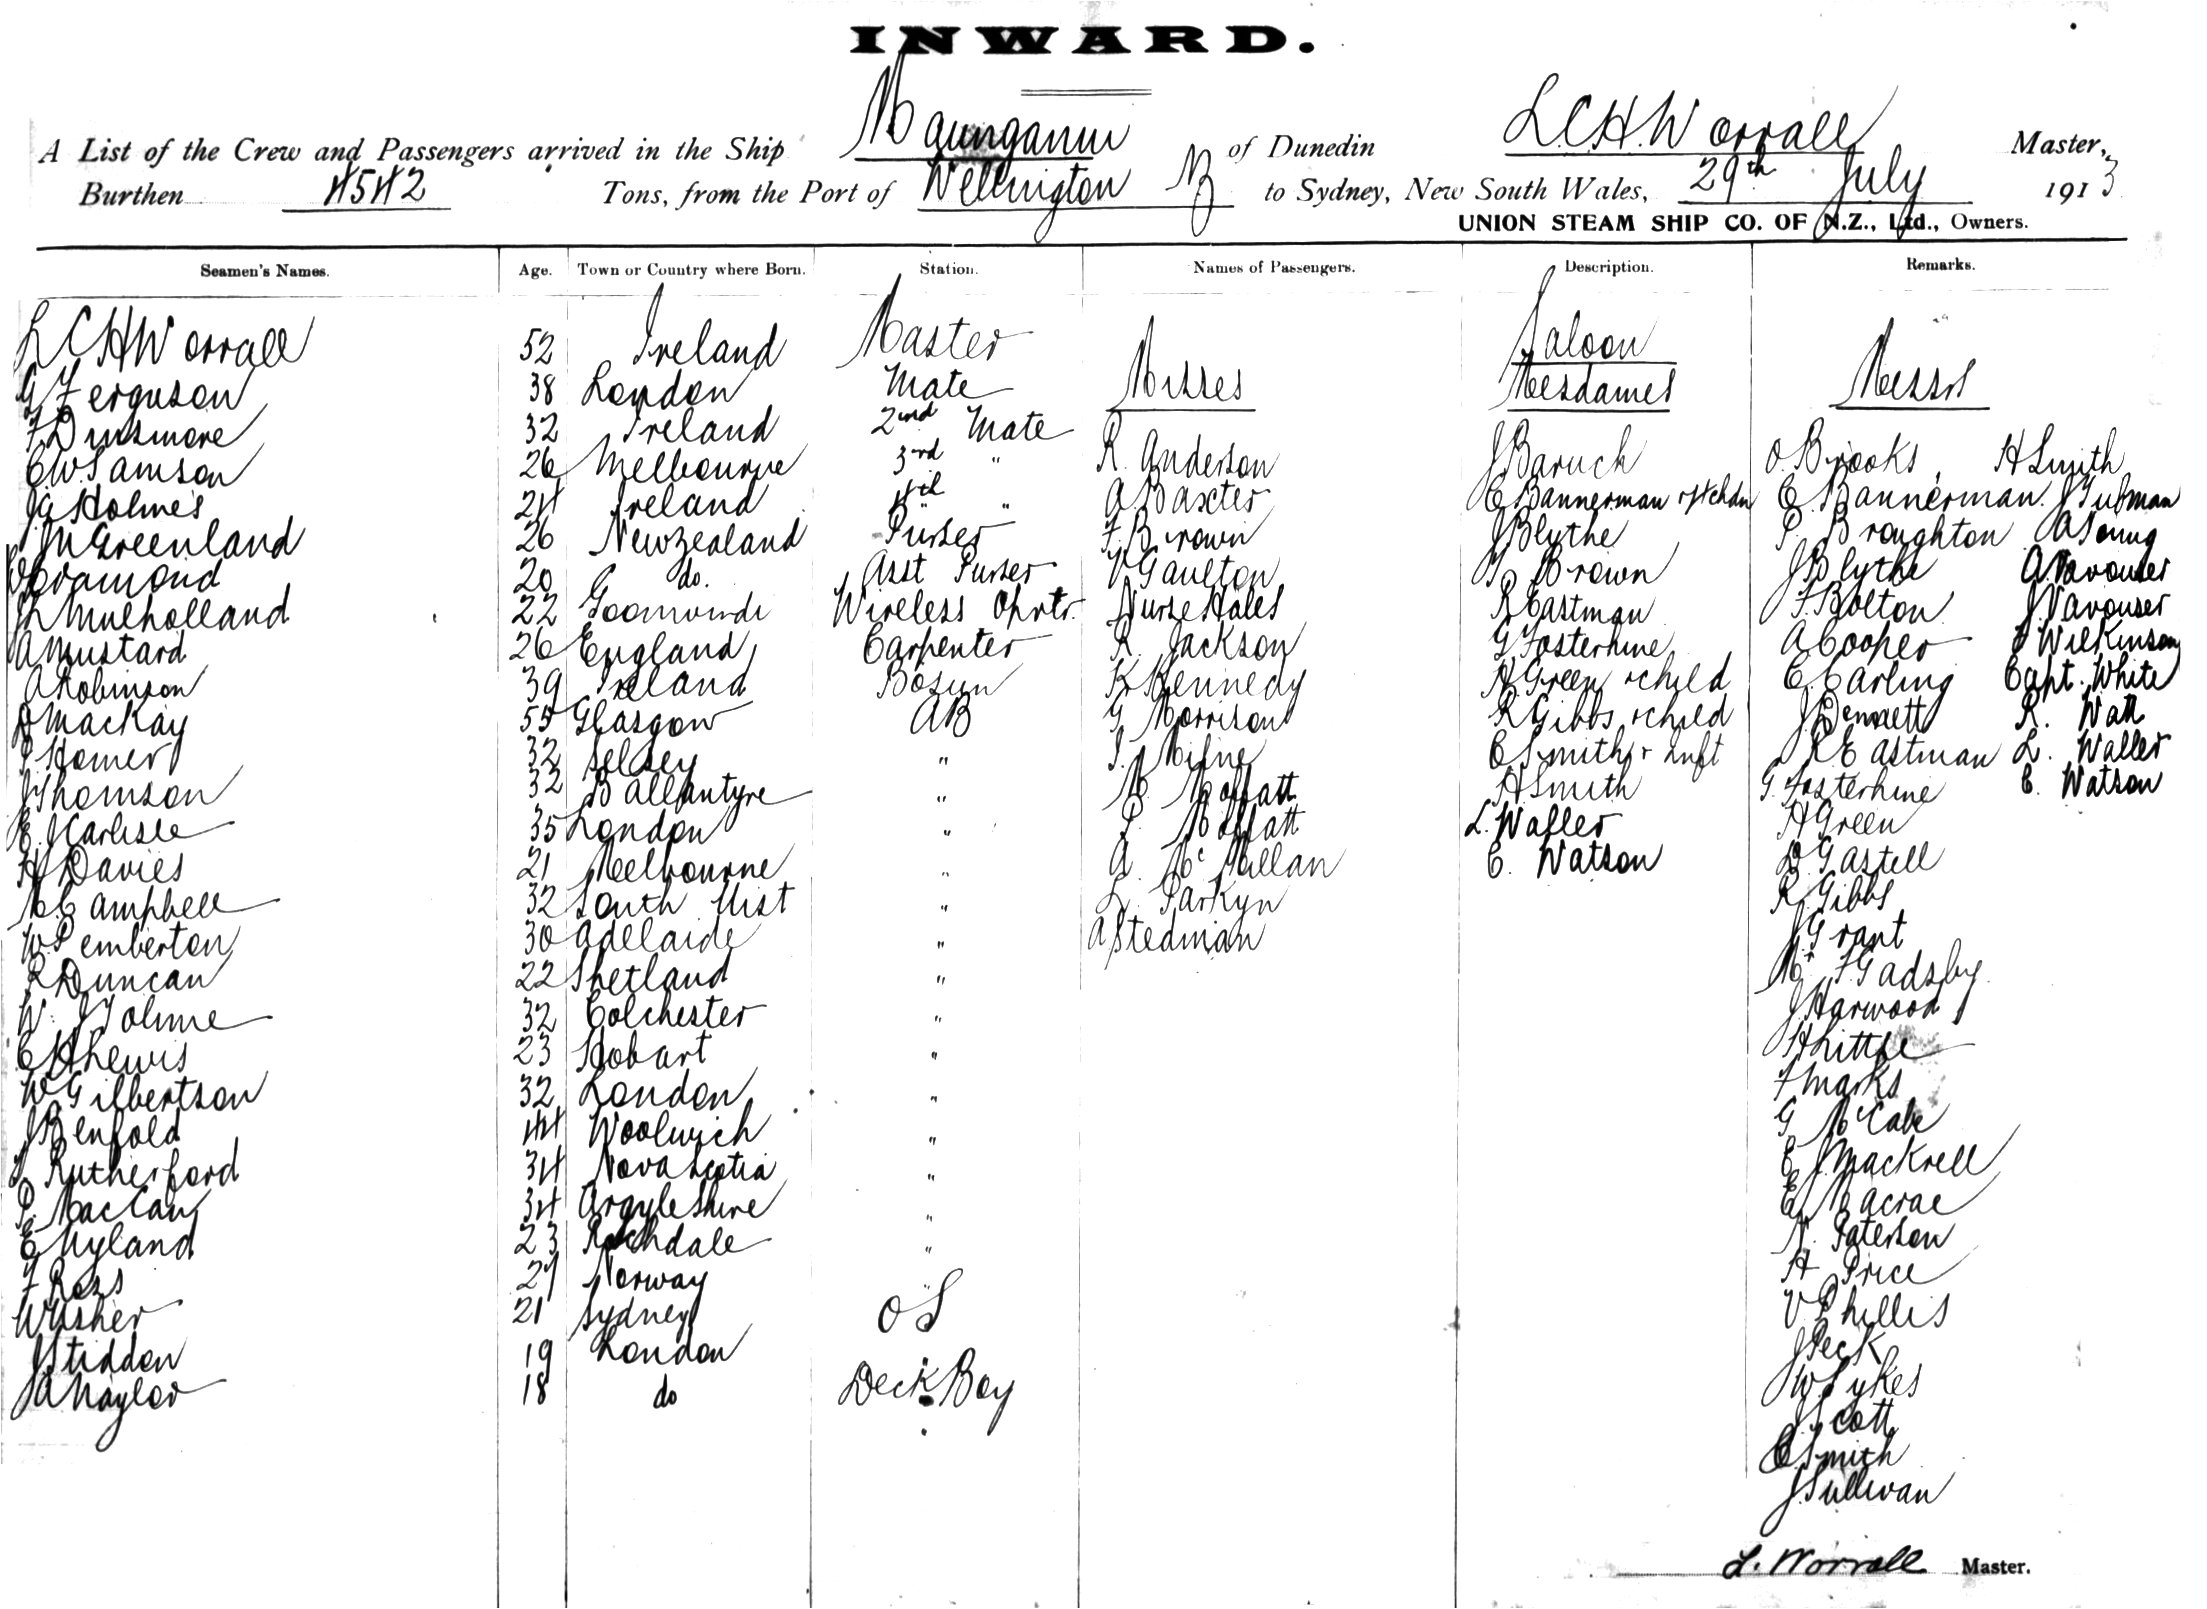 INWARD.
A List of the Crew and Passengers arrived in the Ship Maunganui of Dunedin L.C.H. Worrall Master,
Burthen 4542 Tons, from the Port of Wellington NZ to Sydney, New South Wales, 29th July 1913
UNION STEAM SHIP CO. OF N.Z., Ltd., Owners.
Seamen's Names. Age. Town or Country where Born. Station. Names of Passengers. Description. Remarks.
L C H Worrall 52 Ireland Master
G Ferguson 38 London Mate
F Dinsmore 32 Ireland 2nd Mate
C W Samson 26 Melbourne 3rd "
J G Holmes 24 Ireland 4th "
J M Greenland 26 New Zealand Purser
Cramond 20 do. Asst Purser
J L Mulholland 22 Goonwindi Wireless Oprtr.
A Mustard 26 England Carpenter
A Robinson 39 Ireland Bosun
D Mackay 55 Glasgow AB
Homer 32 Selsey "
J Thomson 32 Ballantyre "
E. Karlisle 35 London "
H Davies 21 Melbourne "
N Campbell 32 South Uist "
W Pemberton 30 Adelaide "
R Duncan 22 Shetland "
W. J Tolme 32 Colchester "
C H Lewis 23 Hobart "
W Gilbertson 32 London "
J Benfold 44 Woolwich "
Rutherford 34 Nova Scotia "
P. MacCan 34 Argyleshire "
E Nyland 23 Rochdale "
F Ross 27 Norway "
W Usher 21 Sydney OS
J Stiddon 19 London
A Naylor 18 do Deck Boy
Misses
R. Anderson
A Baxter
F. Brown
V Gaulton
Nurse Hales
R. Jackson
K Kennedy
G Morrison
I. Milne
M. Moffatt
L. Moffatt
A. McMillan
L. Parkyn
A Stedman
Saloon
Mesdames
J Baruch
C Bannerman & 4 chdn
J Blythe
Brown
R Eastman
G Fosterhine
H Green & child
R Gibbs & child
C Smith & Inft
H Smith
L. Waller
C. Watson
Messrs
O. Brooks
C. Bannerman
P. Broughton
J Blythe
F. Bolton
A Cooper
C. Carling
J Bennett
R Eastman
G. Fosterhine
H Green
D Gastell
R Gibbs
J Grant
Mr F Gadsby
J Harwood
H Little
F Marks
G McCabe
E J. Mackrell
C Macrae
N. Paterson
H Price
V Phillis
J Peck
W Sykes
J Scott
C Smith
J Sullivan
H Smith
J Tubman
A Young
A Vavouser
J Vavouser
Wilkinson
Capt. White
R. Watt
L. Waller
C. Watson
L. Worrall Master.